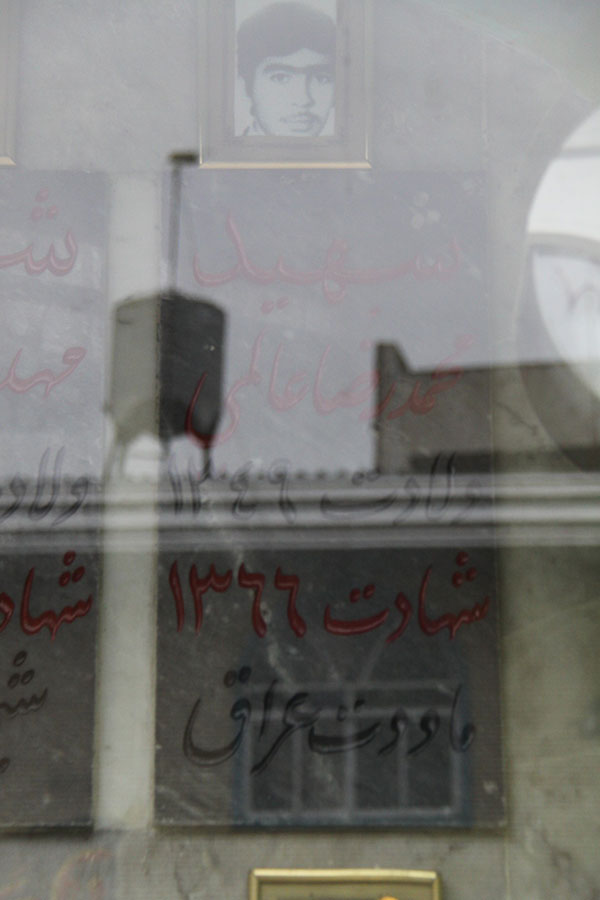 شهید
محمدرضا عالمی
ولادت ۱۳۴۹
شهادت ۱۳۶۶
ماووت عراق
شـ
مهد
ولاد
شهاد